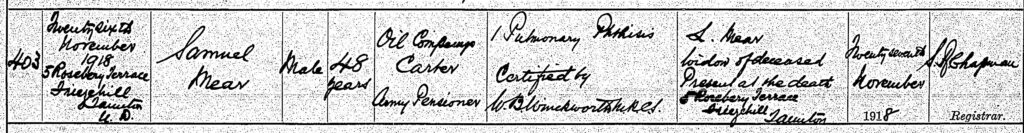 403
Twenty sixth
November
1918
5 Rosebery Terrace
Friezehill
Taunton
U.D.
Samuel
Mear
Male
48
years
Oil Company's
Carter
Army Pensioner
1 Pulmonary Phthisis
Certified by
W.B. Winckworth M.R.C.S.
S. Mear
Widow of deceased
Present at the death
5 Rosebery Terrace
Friezehill
Taunton
Twenty seventh
November
1918
Chapman
Registrar.